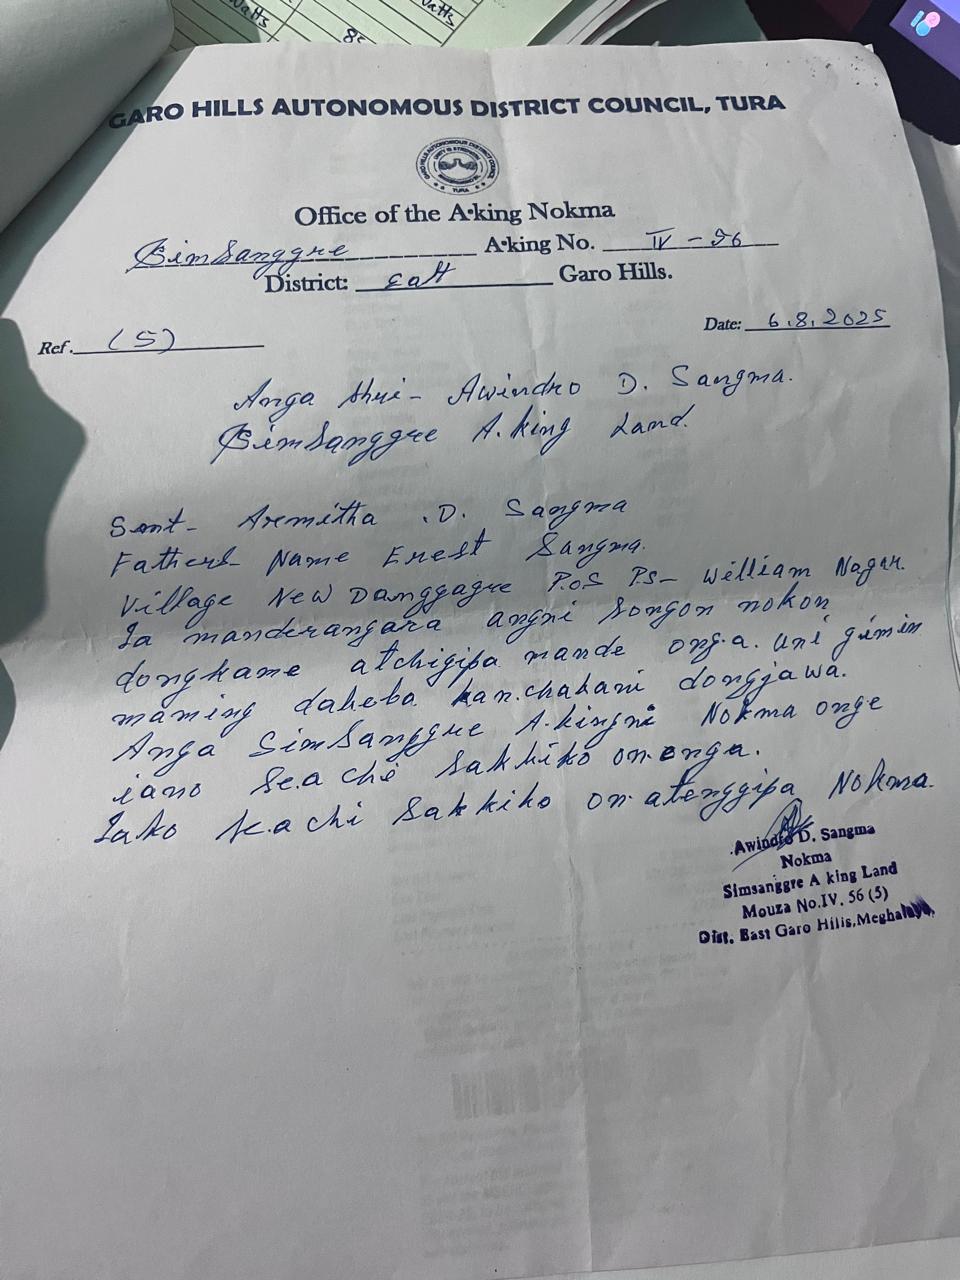 Watts
Watts
85
GARO HILLS AUTONOMOUS DISTRICT COUNCIL, TURA
GARO HILLS AUTONOMOUS DISTRICT COUNCIL
UNITY IS STRENGTH
TURA
Office of the A·king Nokma
Simsanggre A·king No. IV - 56
District: East Garo Hills.
Ref. (5) Date: 6.8.2025
Anga Shri- Awindro D. Sangma.
Simsanggre A.king Land.
Smt- Aremitha .D. Sangma
Fathers Name Erest Sangma.
Village New Danggagre P.O& PS- William Nagar.
Ia manderangara angni songon nokon
dongkame atchigipa mande ong.a. Uni gimin
maming dakeba kan.chakani dongjawa.
Anga Simsanggre A.kingni Nokma onge
iano se.a chi sakkiko on.enga.
Iako se.a chi sakkiko on.atenggipa Nokma.
Awindro D. Sangma
Nokma
Simsanggre A king Land
Mouza No.IV. 56 (5)
Dist. East Garo Hills,Meghalaya.